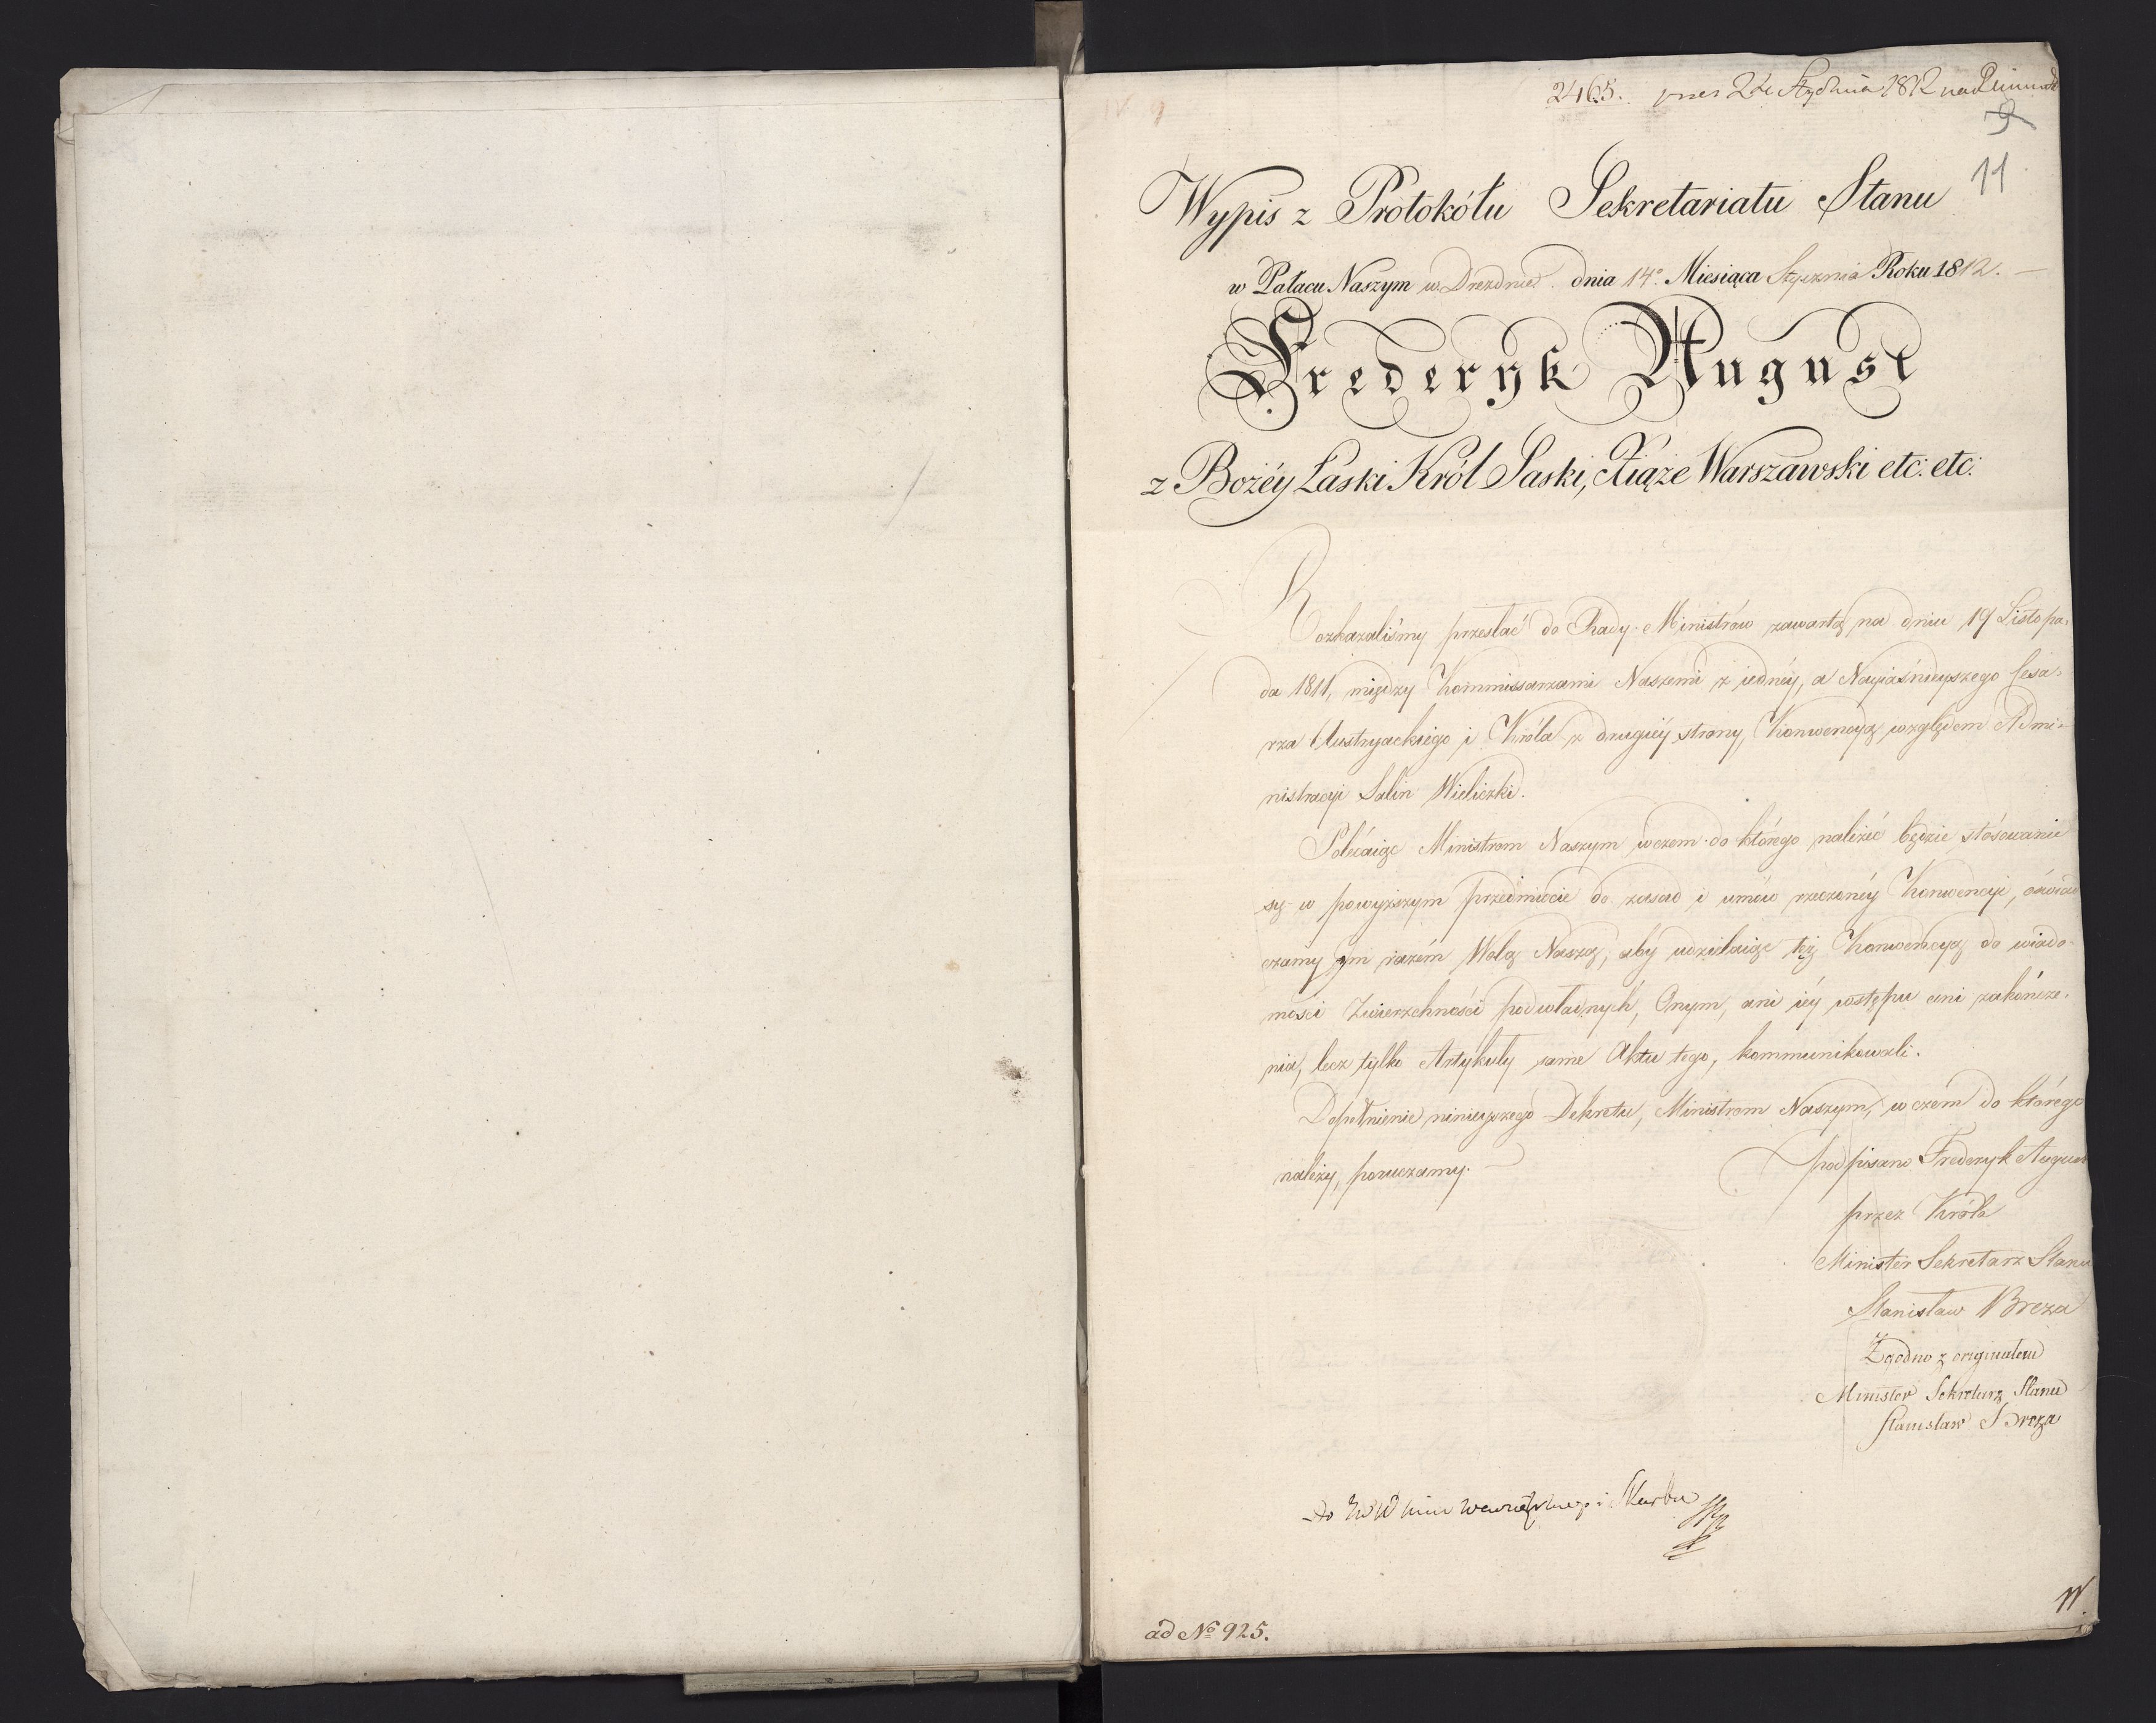 2465. 24 Stycznia 1812 na
9
11
Wypis z Protokółu Sekretariatu Stanu
w Pałacu Naszym w Dreznie dnia 14º Miesiąca Stycznia Roku 1812.
Frederyk August
z Bożéy Łaski Król Saski, Xiąże Warszawski etc: etc:
Rozkazaliśmy przesłać do Rady Ministrów zawartą na dniu 19 Listopa-
da 1811, między Kommissarzami Naszemi z iednéy, a Nayiaśnieyszego Cesa-
rza Austryackiego i Króla z drugiéy strony, Konwencyą względem Admi-
nistracyi Salin Wieliczki.
Polécaiąc Ministrom Naszym w czem do którego należéć będzie stósowanie
się w powyższym przedmiocie do zasad i umów rzeczonéy Konwencyi, oświad
czamy tym razém Wolą Naszą, aby udzielaiąc téż Konwencyą do wiado-
mości Zwierzchności podwładnych, Onym, ani iéy wstępu ani zakończe-
nia, lecz tylko Artykuły same Aktu tego, kommunikowali.
Dopełnienie ninieyszego Dekretu, Ministrom Naszym, w czém do którego
należy, poruczamy.
podpisano Frederyk August
przez Króla
Minister Sekretarz Stanu
Stanisław Breza
Zgodno z oryginałem
Minister Sekretarz Stanu
Stanisław Breza
do i Skarbu
ad Nº 925.